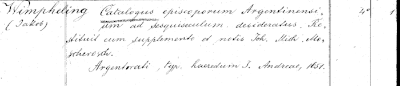 Wimpheling Catalogus episcoporum Argentinensi- 4°
(Jakob) um ad sesquiseculum desideratus. Re-
stituit cum supplemento et notis Joh. Mich. Mo-
scherosch.
Argentorati, typ. haeredum J. Andreae, 1651.